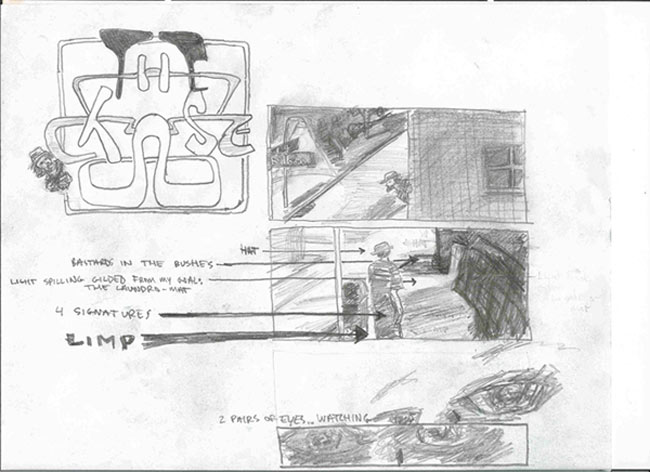 HAT
BASTARDS IN THE BUSHES
LIGHT SPILLING GILDED FROM MY GOAL:
THE LAUNDRO-MAT
4 SIGNATURES
LIMP
2 PAIRS OF EYES.. WATCHING